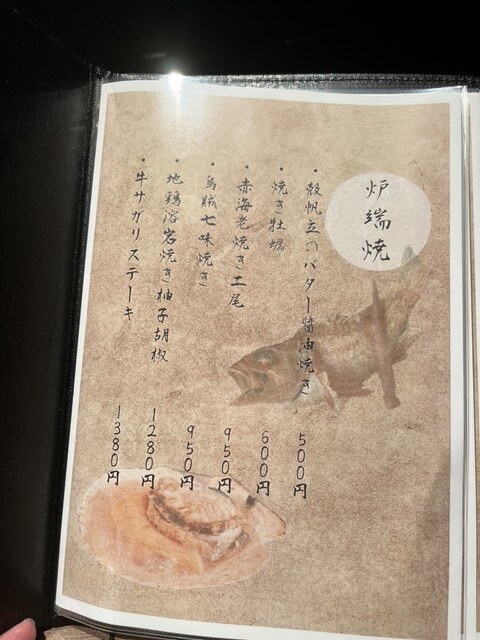 炉端焼
・殻帆立のバター醤油焼き 500円
・焼き牡蠣 600円
・赤海老焼き二尾 950円
・烏賊七味焼き 950円
・地鶏溶岩焼き柚子胡椒 1280円
・牛サガリステーキ 1380円